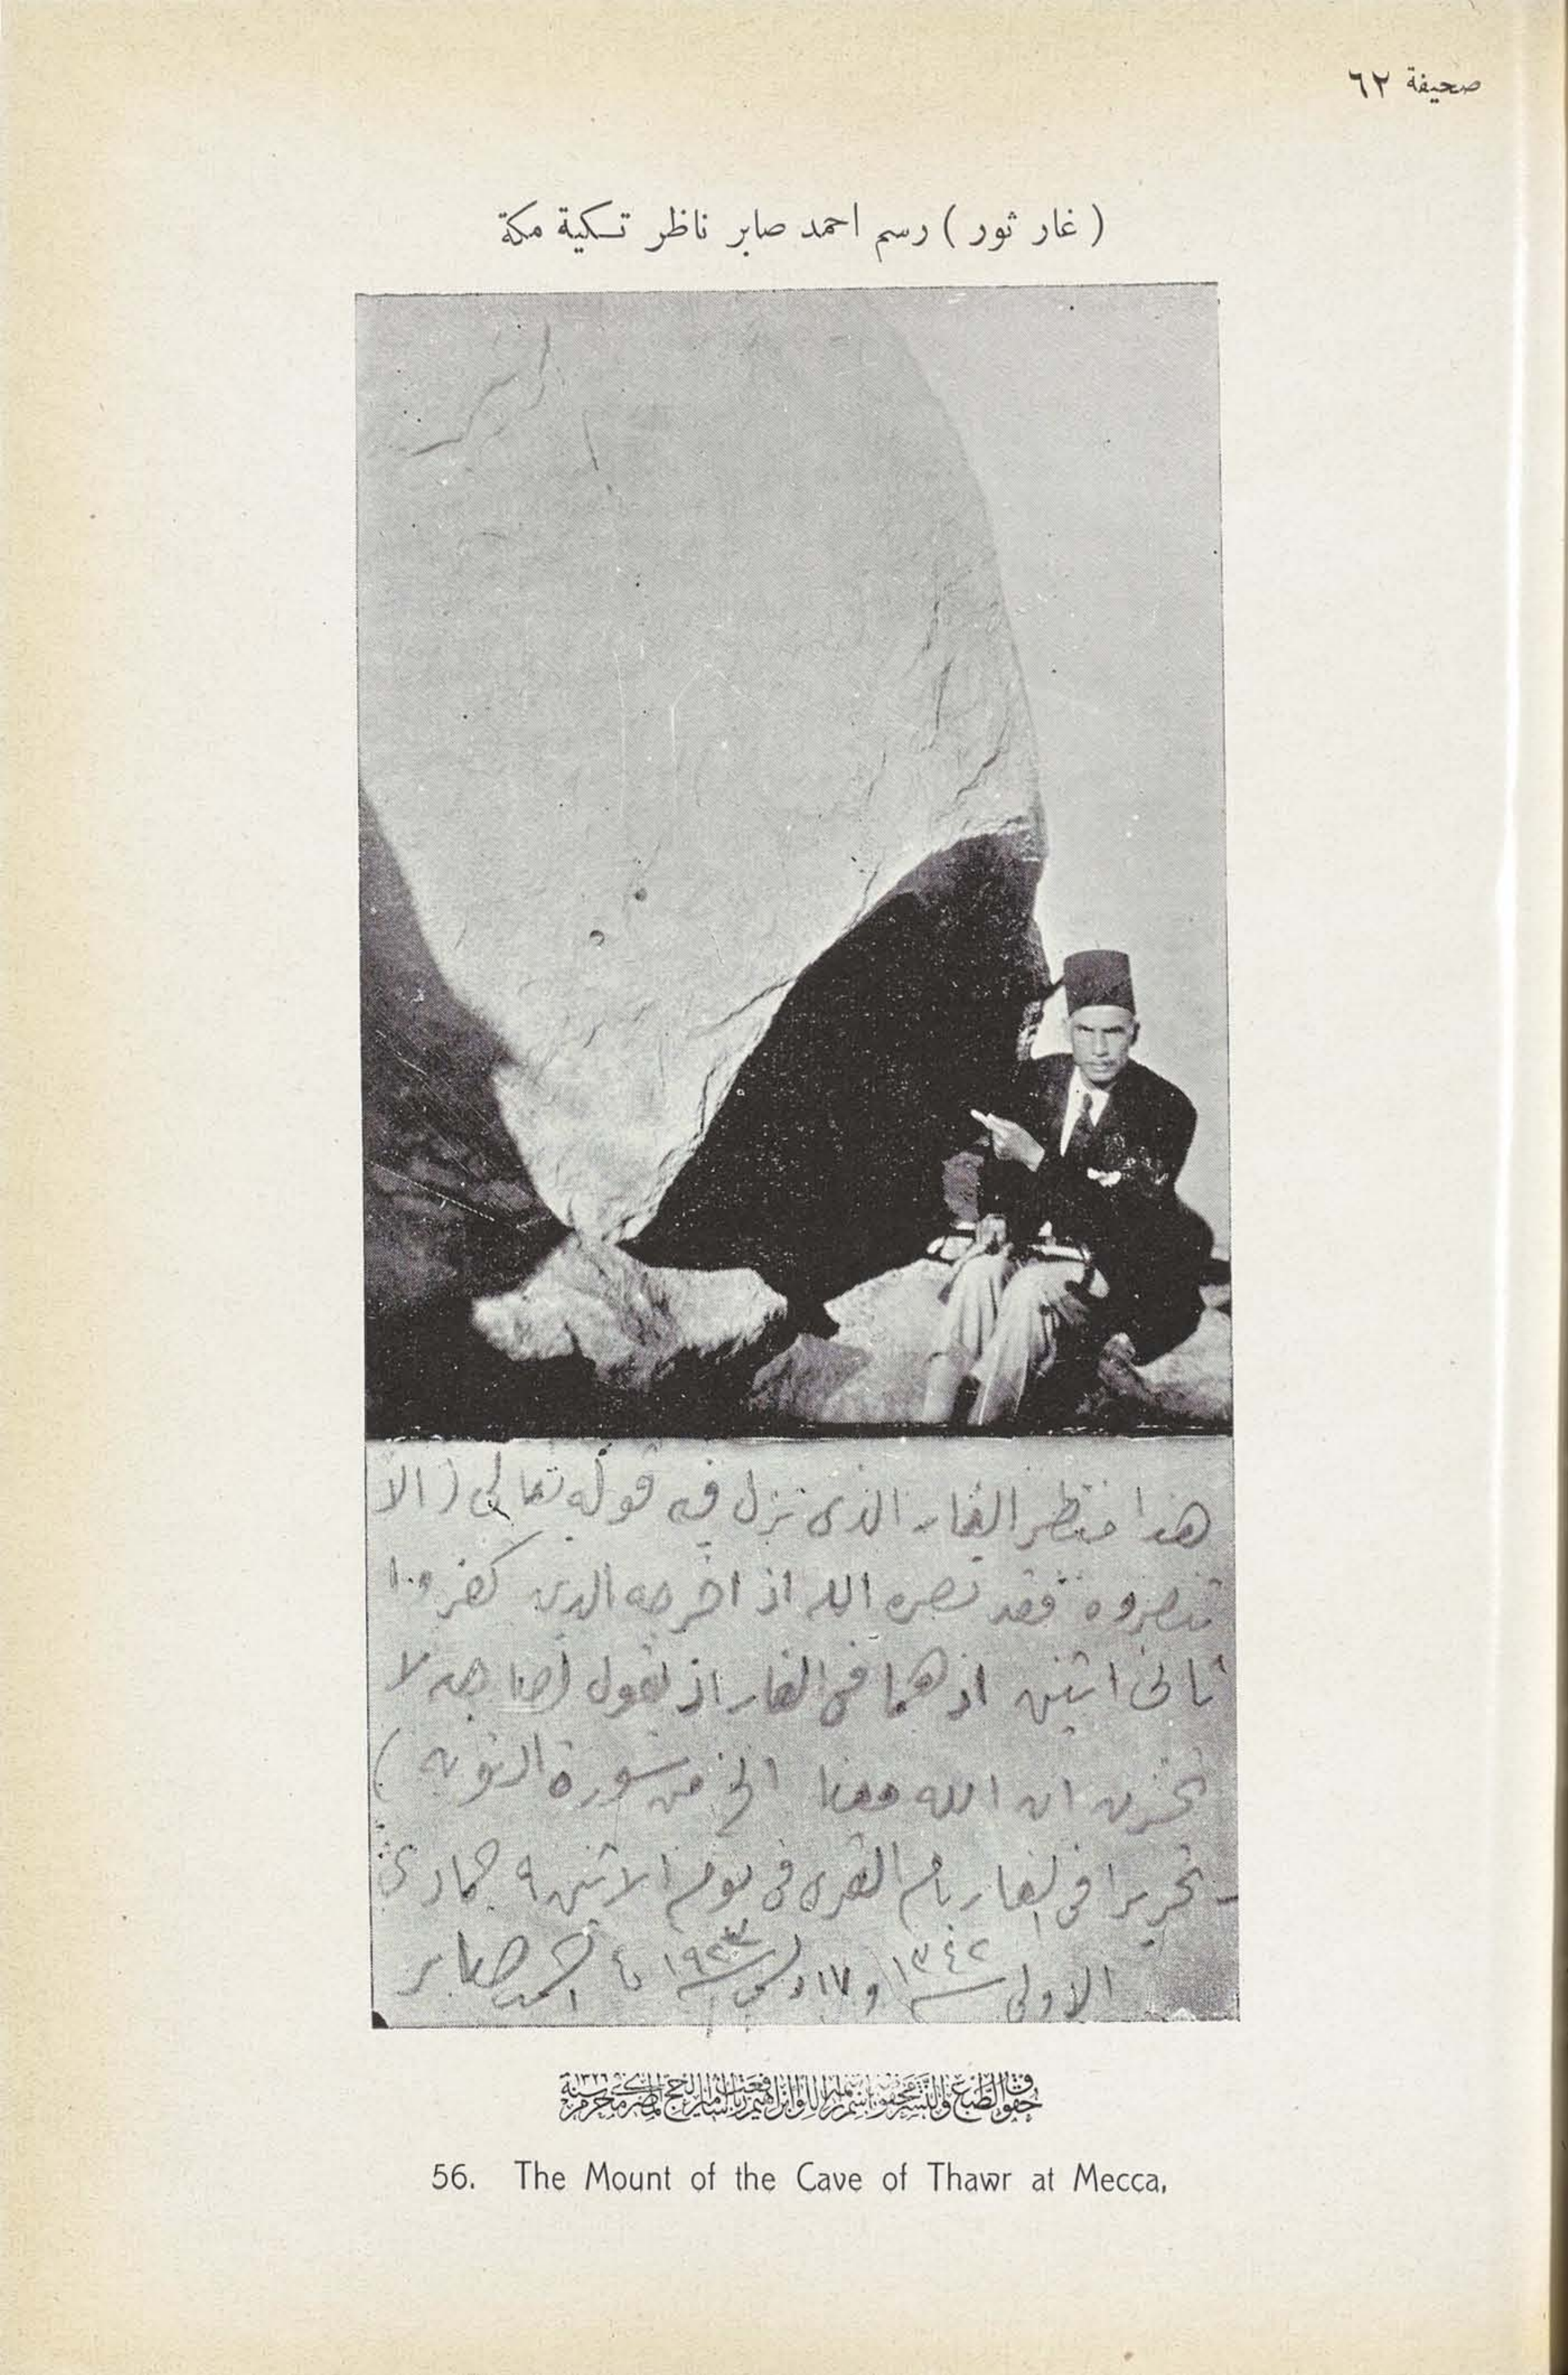 صحيفة ٦٢
( غار ثور ) رسم احمد صابر ناظر تكية مكة
هذا منظر الغار الذى نزل فيه قوله تعالى ( الا
تنصروه فقد نصره الله اذ اخرجه الذين كفروا
ثانى اثنين اذ هما فى الغار اذ يقول لصاحبه لا
تحزن ان الله معنا الخ من سورة التوبه )
تحريرا فى الغار بام القرى فى يوم الاثنين ٩ جمادى
الاولى ١٣٤٢ و ١٧ ١٩٢٣ احمد صابر
حقوق الطبع والنشر محفوظة باسم اللوا ابراهيم رفعت باشا امير الحج المصرى
56. The Mount of the Cave of Thawr at Mecca.